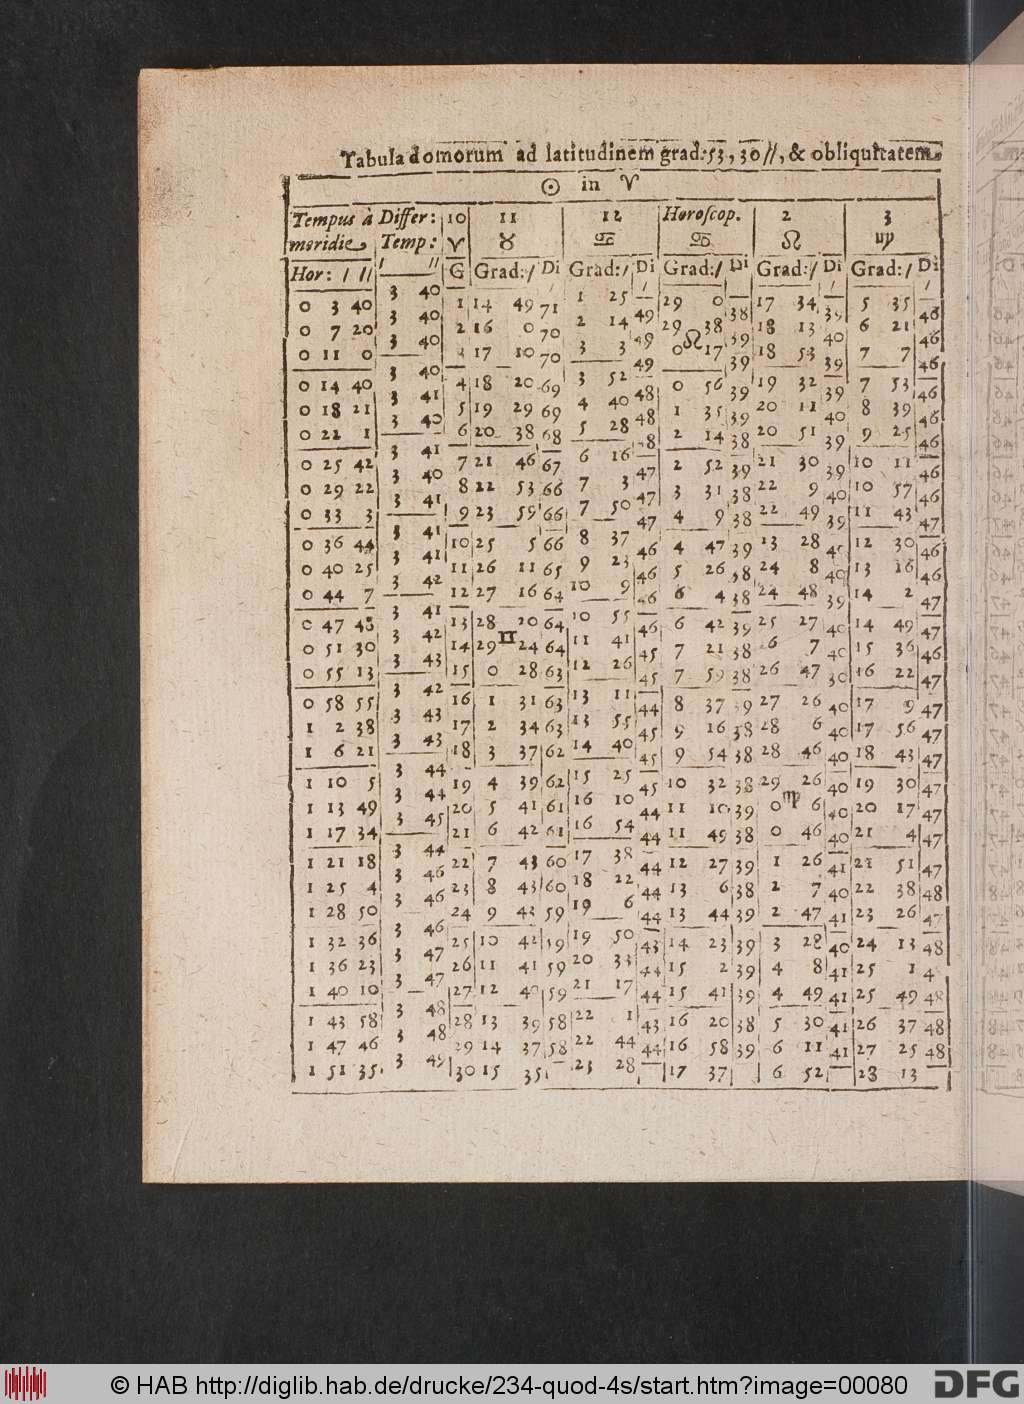 Tabula domorum ad latitudinem grad: 53, 30 //, & obliquitatem
☉ in ♈
Tempus à Differ: 10 11 12 Horoscop. 2 3
meridie Temp: ♈ ♉ ♋ ♋ ♌ ♍
Hor: / // / // G Grad:/ Di Grad:/ Di Grad:/ Di Grad:/ Di Grad:/ Di
3 40
0 3 40 1 14 49 71 1 25 49 29 0 38 17 34 39 5 35 46
3 40
0 7 20 2 16 0 70 2 14 49 29 38 39 18 13 40 6 21 46
3 40 ♌
0 11 0 3 17 10 70 3 3 49 0 17 39 18 53 39 7 7 46
3 40
0 14 40 4 18 20 69 3 52 48 0 56 39 19 32 39 7 53 46
3 41
0 18 21 5 19 29 69 4 40 48 1 35 39 20 11 40 8 39 46
3 40
0 22 1 6 20 38 68 5 28 48 2 14 38 20 51 39 9 25 46
3 41
0 25 42 7 21 46 67 6 16 47 2 52 39 21 30 39 10 11 46
3 40
0 29 22 8 22 53 66 7 3 47 3 31 38 22 9 40 10 57 46
3 41
0 33 3 9 23 59 66 7 50 47 4 9 38 22 49 39 11 43 47
3 41
0 36 44 10 25 5 66 8 37 46 4 47 39 23 28 12 30 46
3 41
0 40 25 11 26 11 65 9 23 46 5 26 38 24 8 40 13 16 46
3 42
0 44 7 12 27 16 64 10 9 46 6 4 38 24 48 39 14 2 47
3 41
0 47 48 13 28 20 64 10 55 46 6 42 39 25 27 40 14 49 47
3 42 ♊
0 51 30 14 29 24 64 11 41 45 7 21 38 26 7 40 15 36 46
3 43
0 55 13 15 0 28 63 12 26 45 7 59 38 26 47 30 16 22 47
3 42
0 58 55 16 1 31 63 13 11 44 8 37 39 27 26 40 17 9 47
3 43
1 2 38 17 2 34 63 13 55 45 9 16 38 28 6 40 17 56 47
3 43
1 6 21 18 3 37 62 14 40 45 9 54 38 28 46 40 18 43 47
3 44
1 10 5 19 4 39 62 15 25 45 10 32 38 29 26 40 19 30 47
3 44 ♍
1 13 49 20 5 41 61 16 10 44 11 10 39 0 6 40 20 17 47
3 45
1 17 34 21 6 42 61 16 54 44 11 49 38 0 46 40 21 4 47
3 44
1 21 18 22 7 43 60 17 38 44 12 27 39 1 26 41 21 51 47
3 46
1 25 4 23 8 43 60 18 22 44 13 6 38 2 7 40 22 38 48
3 46
1 28 50 24 9 43 59 19 6 44 13 44 39 2 47 41 23 26 47
3 46
1 32 36 25 10 42 59 19 50 43 14 23 39 3 28 40 24 13 48
3 47
1 36 23 26 11 41 59 20 33 44 15 2 39 4 8 41 25 1 4
3 47
1 40 10 27 12 40 59 21 17 44 15 41 39 4 49 41 25 49 48
3 48
1 43 58 28 13 39 58 22 1 43 16 20 38 5 30 41 26 37 48
3 48
1 47 46 29 14 37 58 22 44 44 16 58 39 6 11 41 27 25 48
3 49
1 51 35 30 15 35 23 28 17 37 6 52 28 13
© HAB http://diglib.hab.de/drucke/234-quod-4s/start.htm?image=00080
DFG